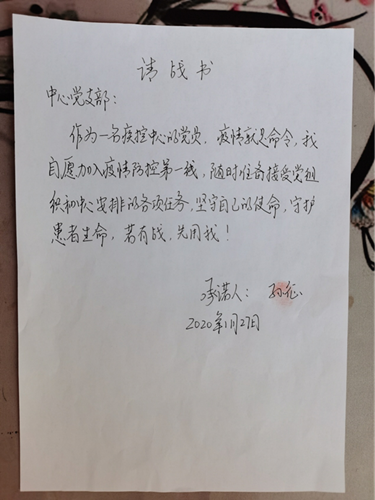 请战书
中心党支部：
作为一名疾控中心的党员，疫情就是命令，我
自愿加入疫情防控第一线，随时准备接受党组
织和中心安排的各项任务，坚守自己的使命，守护
患者生命，若有战，先用我！
承诺人：孙征
2020年1月27日